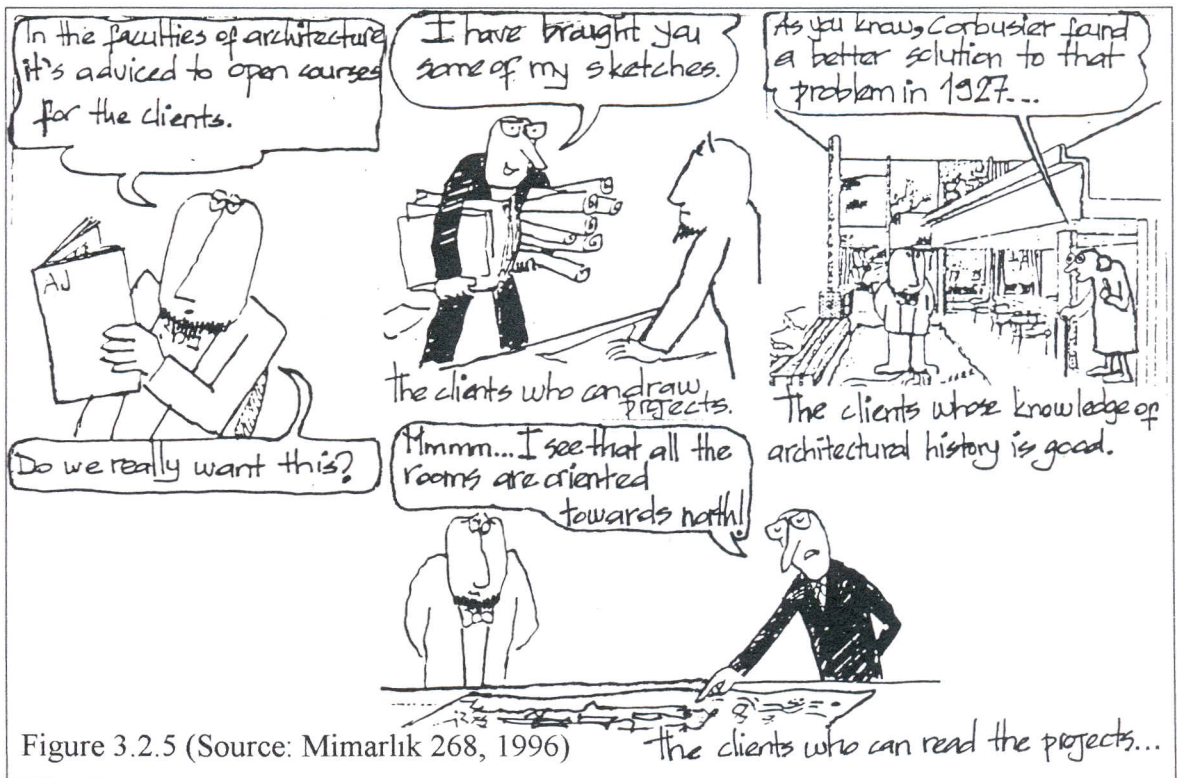 In the faculties of architecture
it's adviced to open courses
for the clients.
AJ
Do we really want this?
I have brought you
some of my sketches.
The clients who can draw
projects.
As you know, Corbusier found
a better solution to that
problem in 1927...
The clients whose knowledge of
architectural history is good.
Mmmm... I see that all the
rooms are oriented
towards north!
The clients who can read the projects...
Figure 3.2.5 (Source: Mimarlık 268, 1996)